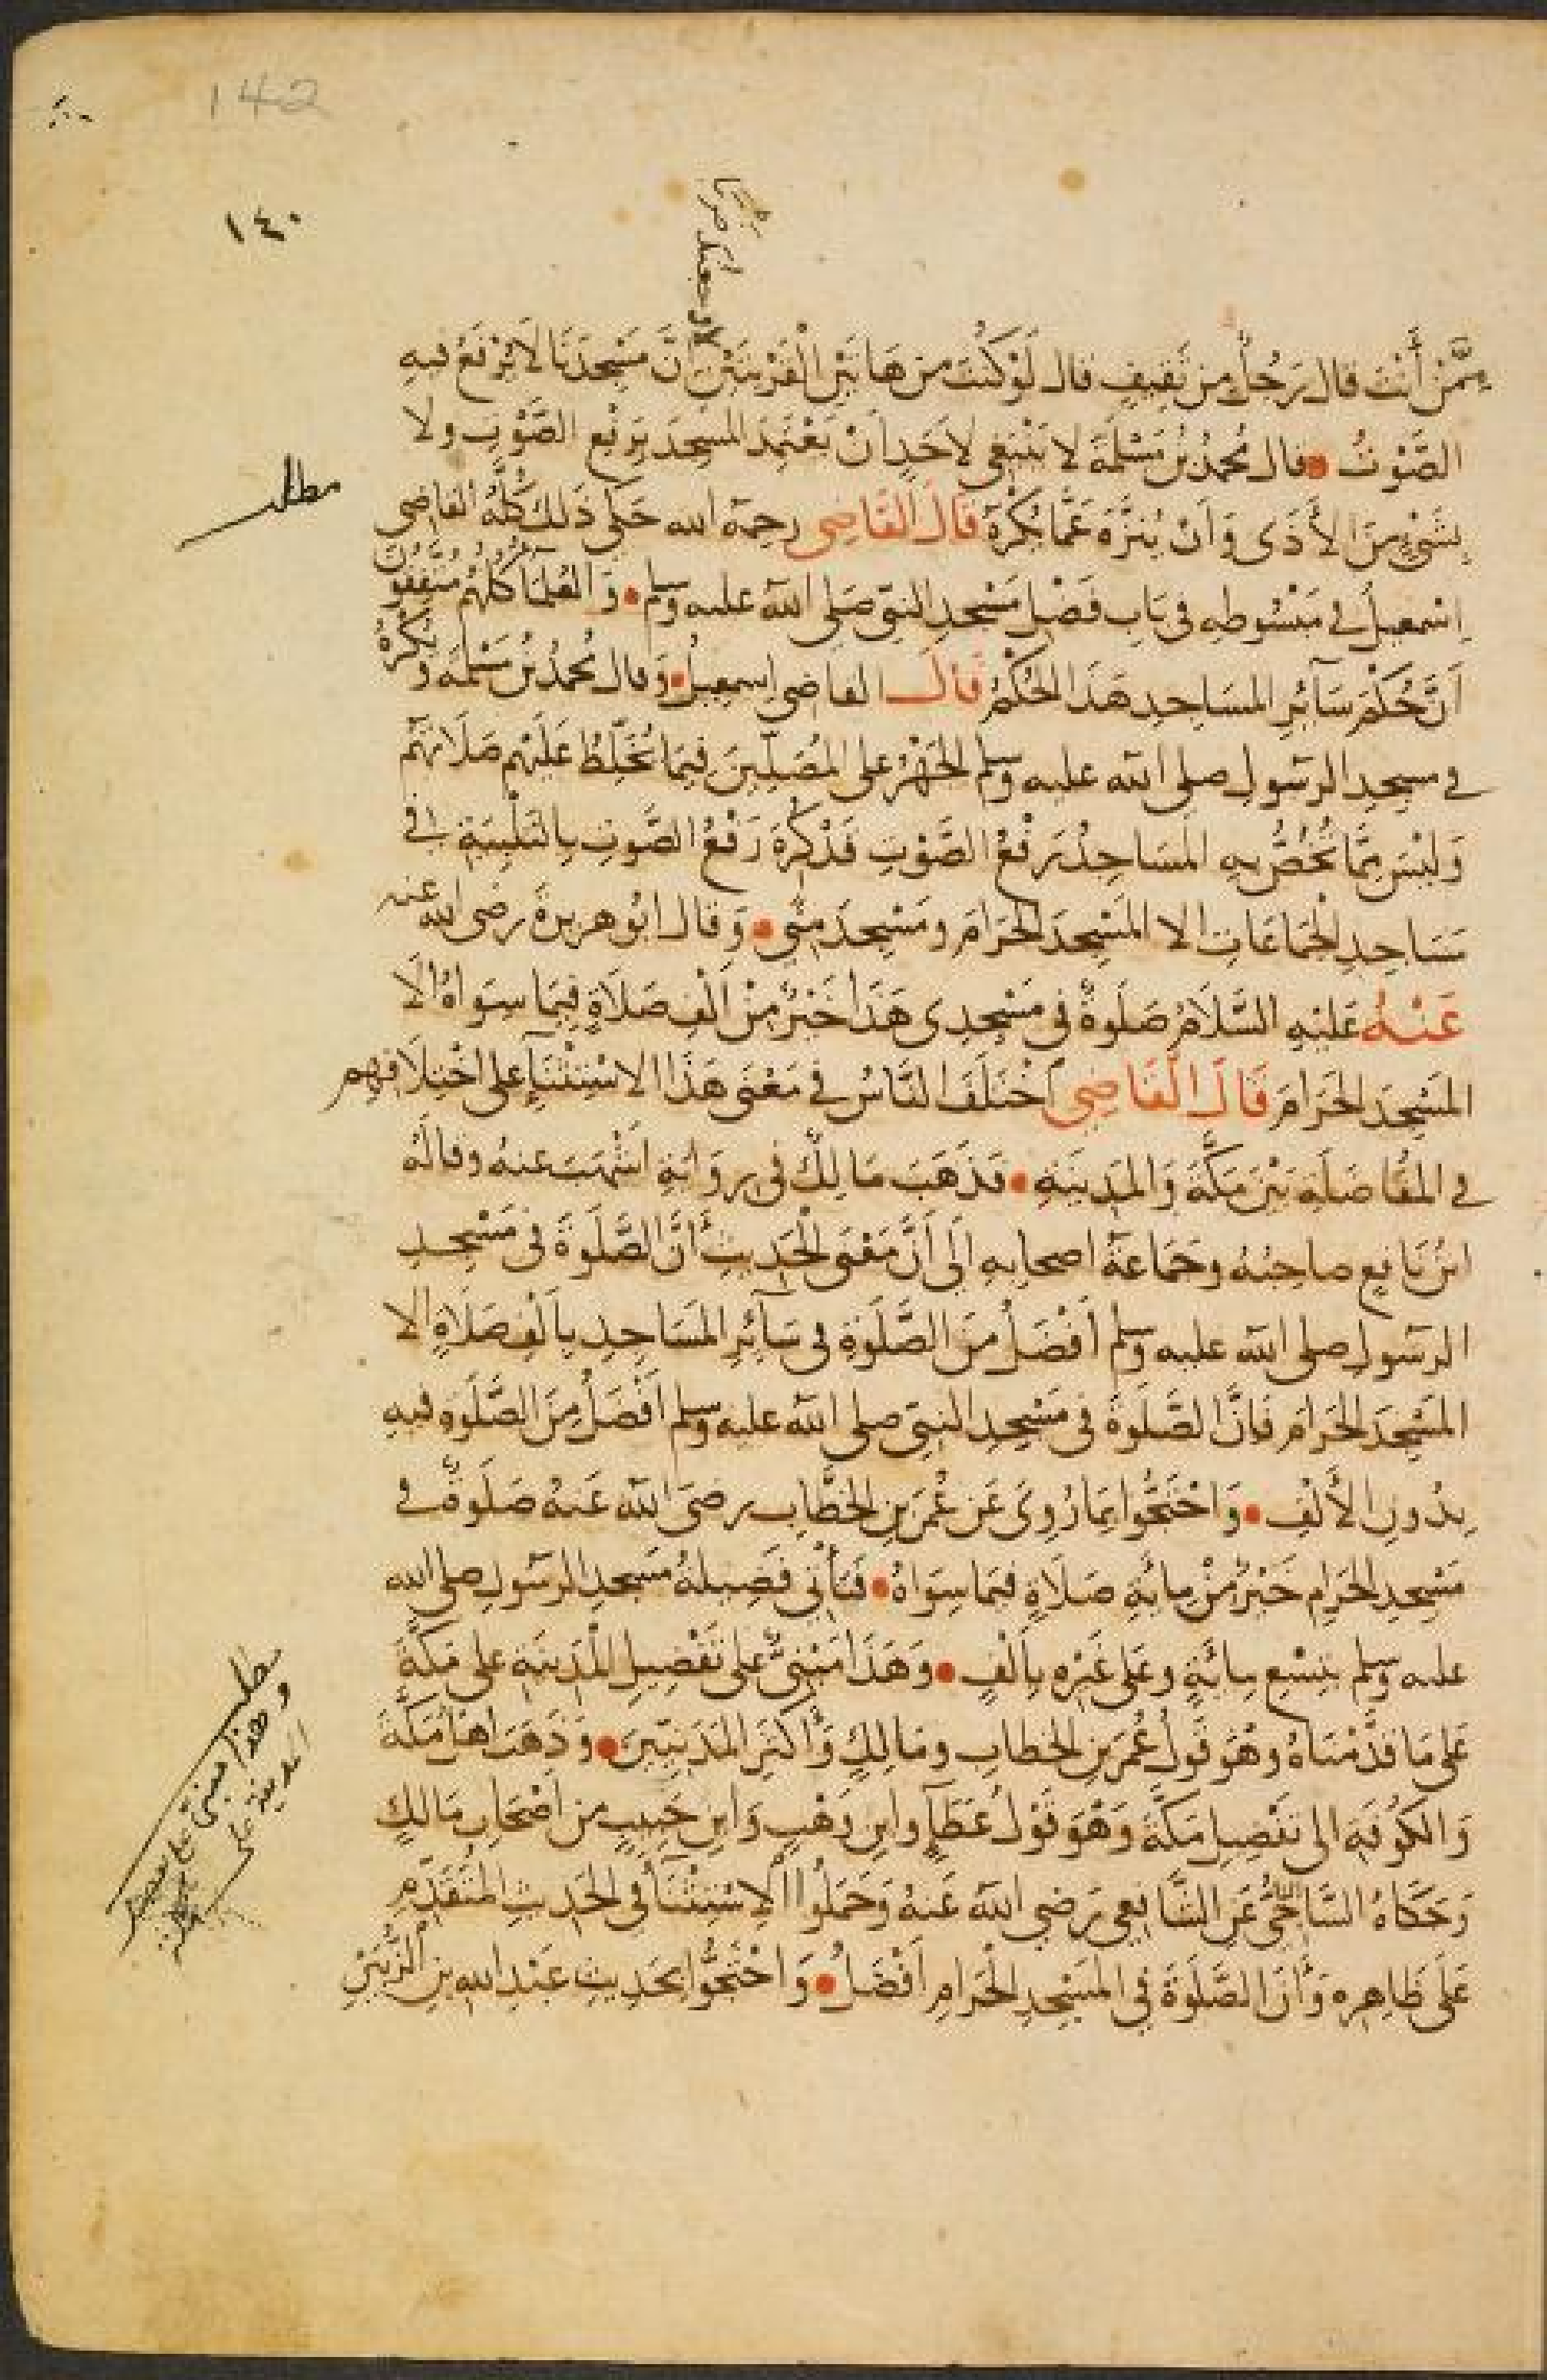 142
١٤٠
لادبتك
مِمَّنْ أَنْتَ قال رَجُلٌ مِن ثَقِيفٍ قال لَوْ كُنْتَ من هَاتَيْنِ الْقَرْيَتَيْنِ إنَّ مَسْجِدَنَا لَا يُرْفَعُ فيهِ
الصَّوْتُ • قال محمدُ بْنُ مَسْلَمَةَ لا يَنْبَغِي لِأَحَدٍ أَنْ يَعْتَمِدَ المسْجِدَ بِرَفْعِ الصَّوْتِ ولا
مطلب
بِشَيْءٍ مِنَ الْأَذَى وَأَنْ يُنَزَّهَ عَمَّا يُكْرَهُ قَالَ القَاضِى رحمة الله حَكَى ذَلِكَ كُلَّهُ القاضِى
اِسْمعيلُ في مَبْسُوطِهِ في بَابِ فَضْلِ مَسْجِدِ النَّبِيّ صَلى اللهُ عليه وسلم • وَالْعُلَمَآ كُلُّهُمْ مُتَّفِقُونَ
اَنَّ حُكْمَ سَآئِرِ المسَاجِدِ هَذَا الحُكْمُ قَالَ القاضى اسمعيلُ • وَقال محمدُ بْنُ مَسْلَمَة وَيُكْرَهُ
في مسجدِ الرسُولِ صلى الله عليه وسلم الجَهْرُ على المُصَلِّينَ فِيمَا يُخَلِّطُ عَلَيْهِم صَلَاتَهُم
وَلَيْسَ مِمَّا يُخَصُّ بِهِ المَسَاجِدُ رَفْعُ الصَّوْتِ قَدْ كُرِهَ رَفْعُ الصَّوتِ بِالتَّلْبِيَةِ في
مَسَاجِدِ الْجَمَاعَاتِ الا المَسْجِدَ الحَرَامَ ومَسْجِدَ مِنًى • وَقَال ابُو هريرةَ رضى الله عنه
عَنْهُ عَلَيْهِ السَّلَامُ صَلَوةٌ في مَسْجِدِى هَذَا خَيْرٌ مِنْ أَلْفِ صَلَاةٍ فِيمَا سِوَاهُ اِلَّا
المَسْجِدَ الحَرَامَ قَالَ القَاضِى اَخْتَلَفَ النَّاسُ في مَعْنَى هَذَا الاسْتِثْنَآءِ على اخْتِلَافِهِم
في المُفَاضَلَةِ بَيْنَ مَكَّةَ وَالمَدِينَةِ • فَذَهَبَ مَالِكٌ في رِوَايَةِ اَشْهَبَ عنه وقالَهُ
ابنُ نَافِعٍ صاحِبُهُ وجَمَاعَةُ اصحابِهِ اِلَى أَنَّ مَعْنَى الْحَدِيثِ أَنَّ الصَّلَوةَ في مَسْجِدِ
الرسُولِ صلى اللهُ عليه وسلم أَفْضَلُ مِنَ الصَّلَوةِ في سَآئِرِ المَسَاجِدِ بِاَلْفِ صَلَاةٍ الا
المَسْجِدَ الحَرَامَ فَإِنَّ الصَّلَوةَ في مَسْجِدِ النَّبِيّ صلى اللهُ عليه وسلم اَفْضَلُ مِنَ الصَّلَوةِ فيهِ
بِدُونِ الْأَلْفِ • وَاحْتَجُّوا بِمَا رُوِىَ عَن عُمَرَ بنِ الخطَّابِ رضىَ اللهُ عَنهُ صَلَوةٌ في
مَسْجِدِ الحَرَامِ خَيْرٌ مِنْ مِايَةِ صَلَاةٍ فِيمَا سِوَاهُ • فَتَأْتِي فَضِيلَةُ مَسْجِدِ الرَّسُولِ صلى الله
عليه وسلم بِتِسْعِ مِائَةٍ وعَلَى غَيْرِه بِأَلْفٍ • وَهَذَا مَبْنِيٌّ على تَفْضِيلِ الْمَدِينَةِ على مَكَّةَ
مطلب
وهذا مبنى على تفضيل
المدينة على مكة
عَلَى مَا قَدَّمْنَاهُ وهُوَ قَوْلُ عُمَرَ بنِ الخطابِ ومَالِكٍ وَأَكْثَرِ المَدَنِيِّينَ • وَذَهَبَ اهْلُ مَكَّةَ
وَالكُوفَةِ الى تَفْضِيلِ مَكَّةَ وَهُوَ قَوْلُ عَطَآءٍ وابنِ وَهْبٍ وَابنِ حَبِيبٍ من اَصْحَابِ مَالِكٍ
وَحَكَاهُ السَّاجِيُّ عَنِ الشَّافِعِي رَضِي اللهُ عَنهُ وَحَمَلُوا الاِسْتِثْنَآءَ في الحَدِيثِ الْمُتَقَدِّمِ
عَلَى ظَاهِرِهِ وَأَنَّ الصَّلَوةَ في المَسْجِدِ الْحَرَامِ اَفْضَلُ • وَاحْتَجُّوا بِحَدِيثِ عَبْدِ اللهِ بنِ الزُّبَيْرِ